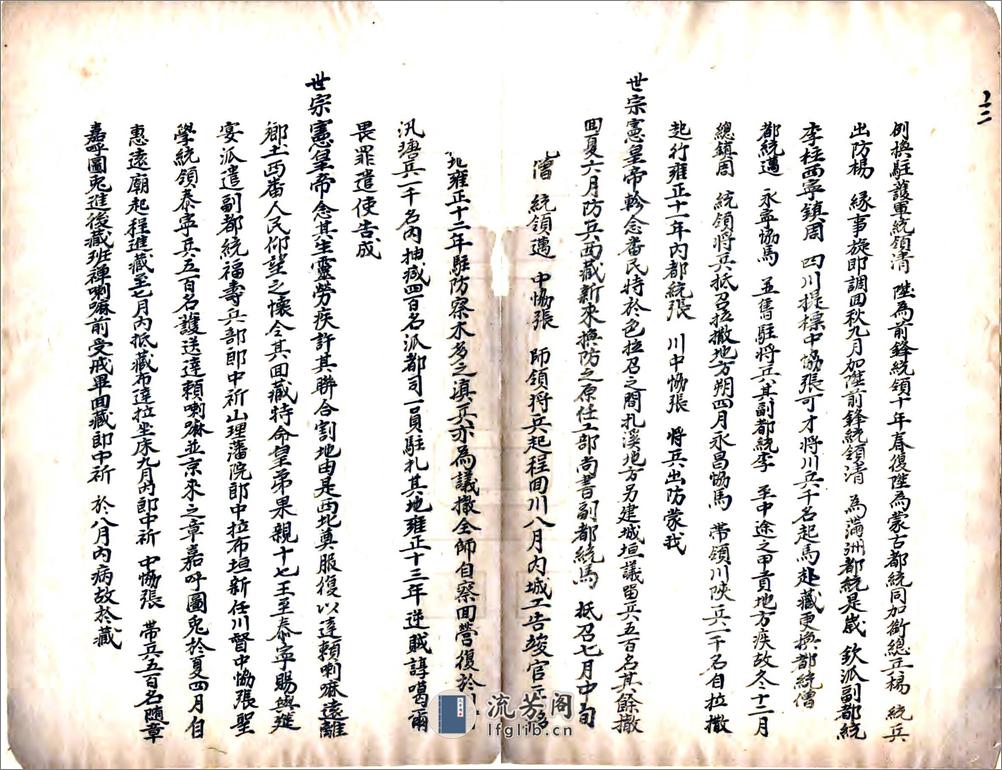 例換駐護軍統領清 陞為前鋒統領十年春復陞為蒙古都統同加銜總兵楊 統兵
出防楊 緣事旋即調回秋九月加陞前鋒統領清 為滿洲都統是歲 欽派副都統
李柱西寧鎮周 四川提標中協張可才將川兵千名起馬赴藏更換都統僧
都統邁 永昌協馬 五隻駐將兵其副都統李 至中途之甲貢地方疾故冬十二月
總鎮周 統領將兵抵召拉撒地方朔四月永昌協馬 帶領川陝兵一千名自拉撒
起行雍正十一年內都統張 川中協張 將兵出防蒙我
世宗憲皇帝軫念番民特於色拉召之間扎溪地方另建城垣議留兵五百名其餘撤
回夏六月防兵西藏新來換防之原任工部尚書副都統馬 抵召七月中旬
僧 統領邁 中協張 師領將兵起程回川八月內城工告竣官
雍正十二年駐防察木多之滇兵亦為議撤全師自察回營復於
汛塘兵一千名內抽減四百名派都司一員駐扎其地雍正十三年逆賊諄噶爾
畏罪遣使告成
世宗憲皇帝念其生靈勞疾許其聯合割地由是西北奠服復以達賴喇嘛遠離
鄉土西番人民仰望之懷令其回藏特命皇弟果親十七王至泰寧賜與筵
宴派遣副都統福壽兵部郎中祈山理藩院郎中拉布垣新任川督中協張聖
學統領泰寧兵五百名護送達賴喇嘛並京來之章嘉呼圖兎於夏四月自
惠遠廟起程進藏至七月內抵藏布達拉坐床九月內郎中祈 中協張 帶兵五百名隨章
嘉呼圖兎進後藏班禪喇嘛前受戒畢回藏郎中祈 於八月內病故於藏
流芳阁
lfglib.com